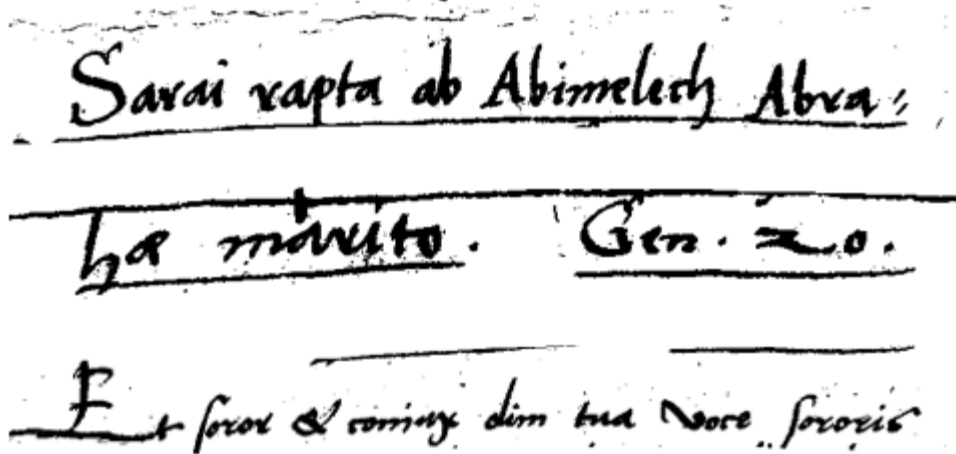 Sarai rapta ab Abimelech Abra⸗
hæ marito. Gen. 20.
Et soror & coniux dim tua voce sororis